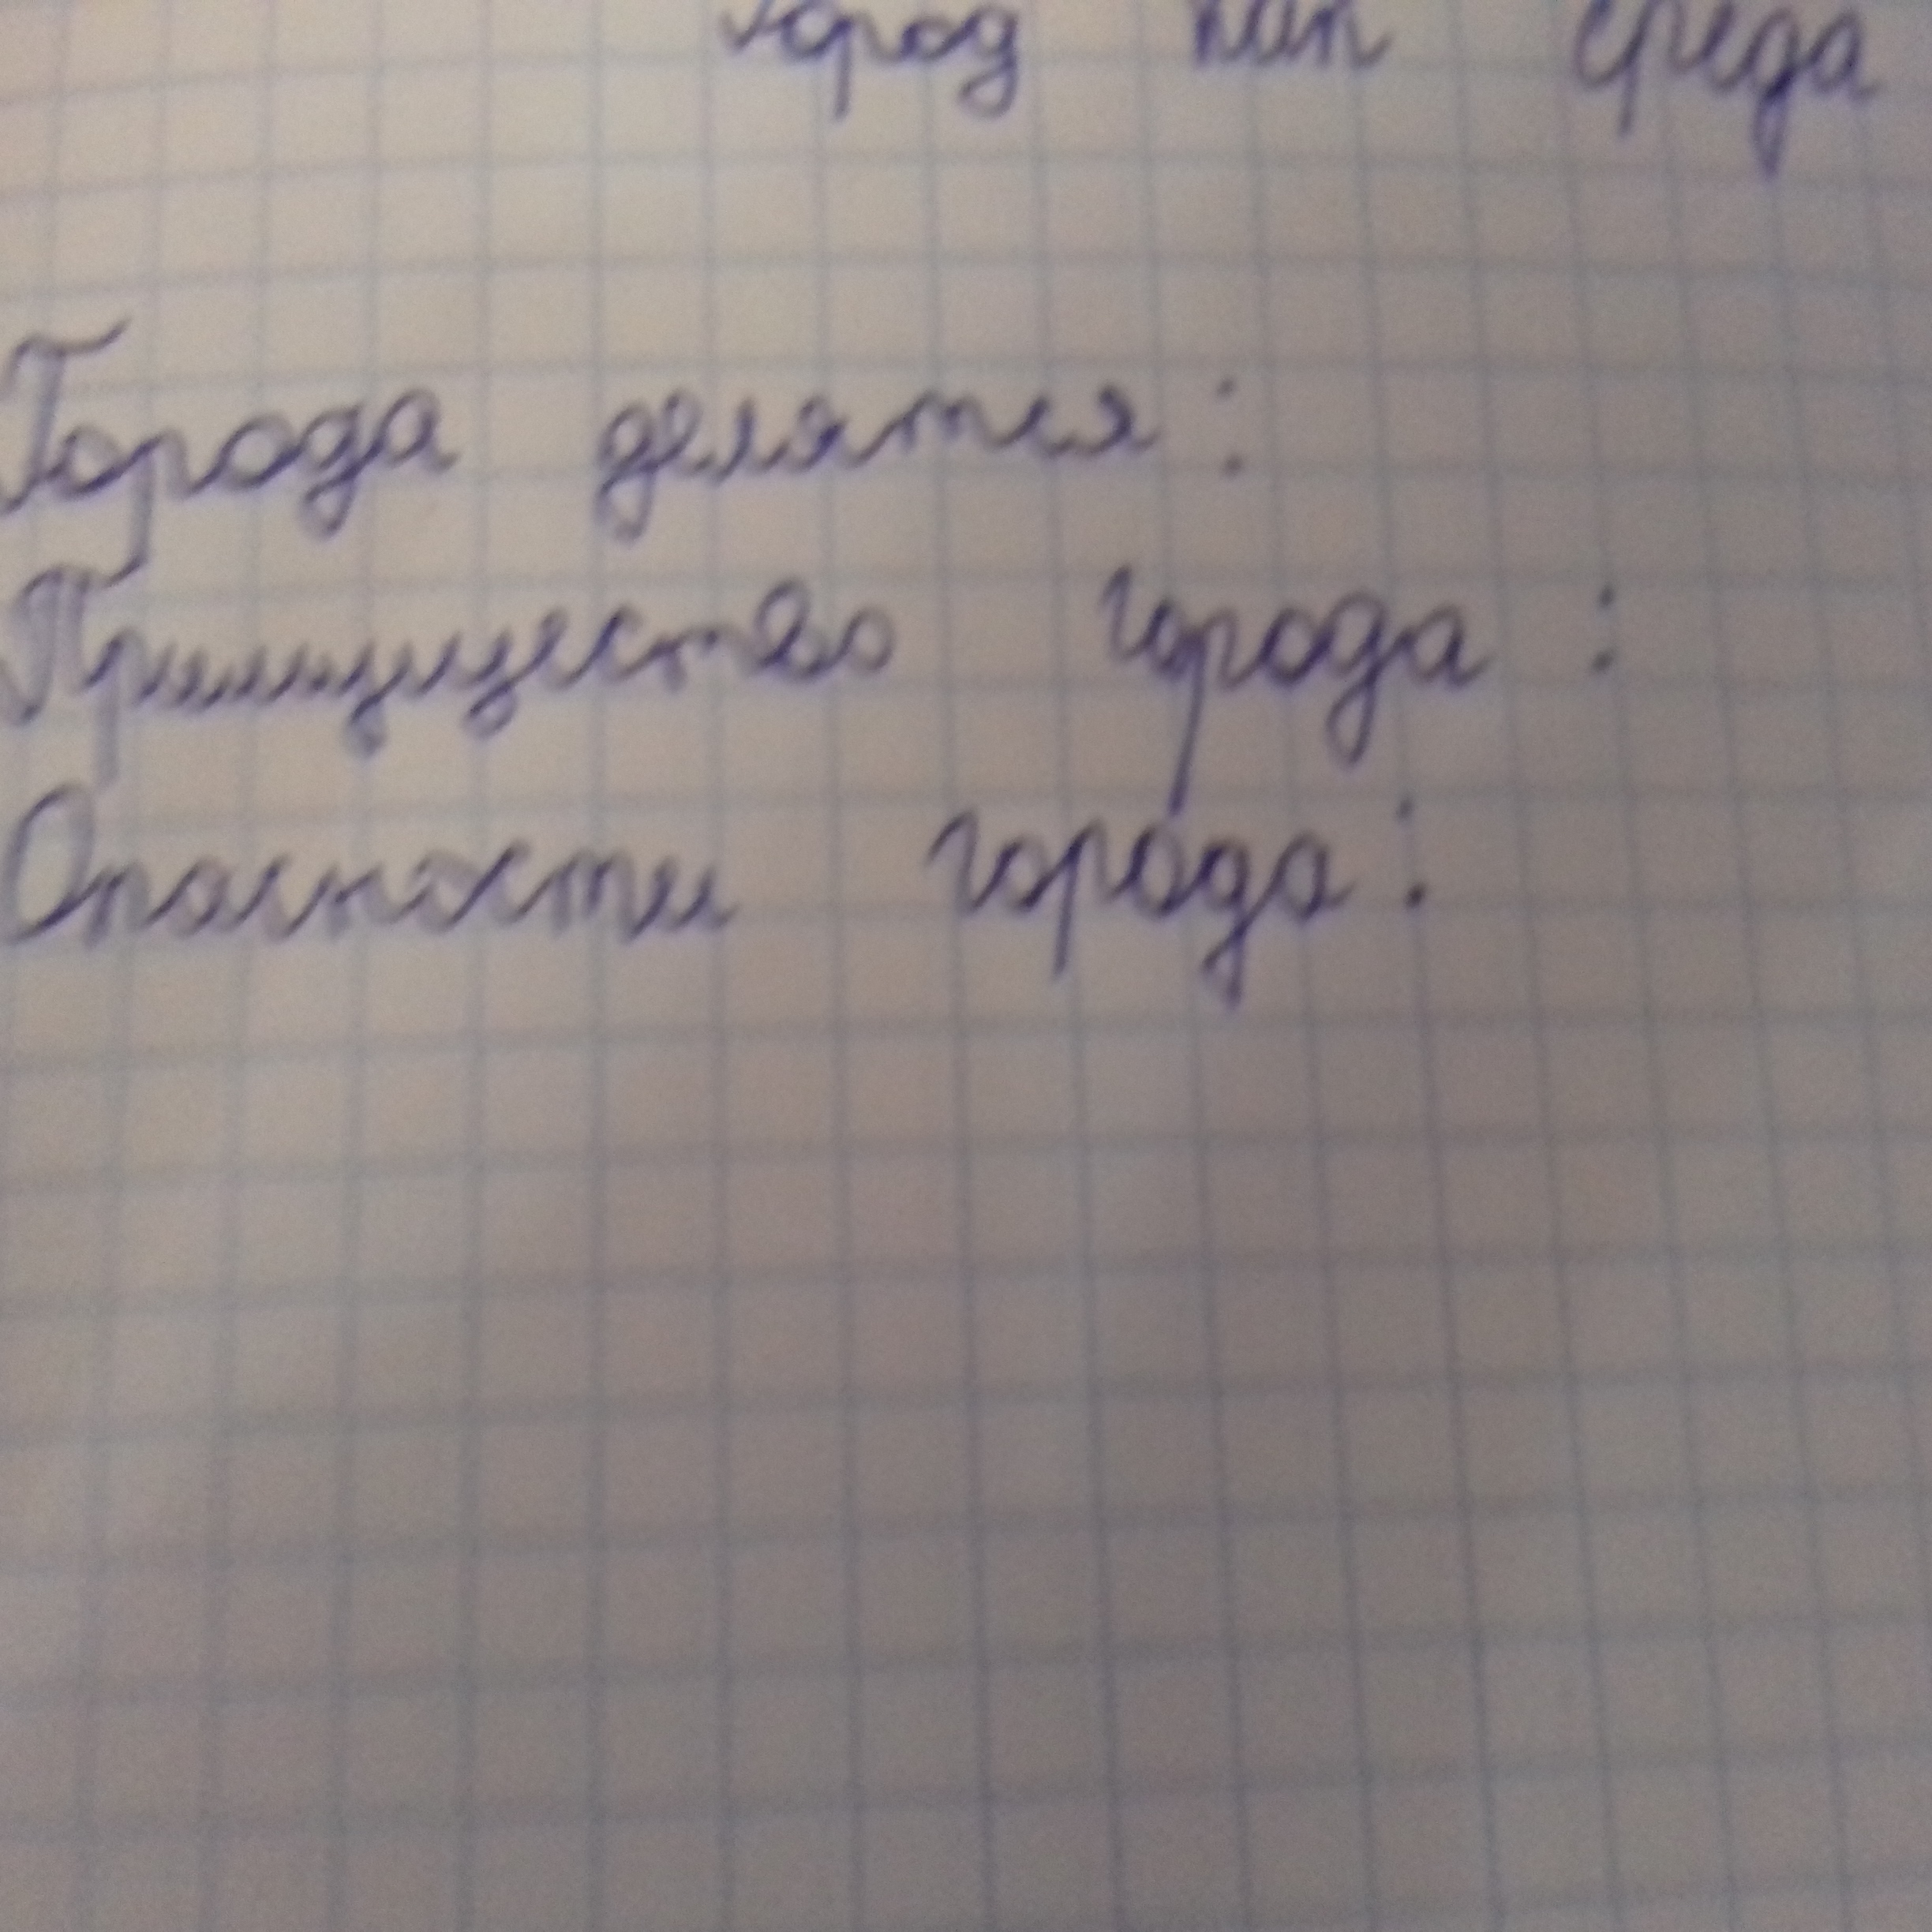 Город как среда
Города делятся:
Примущество города:
Опасности города: